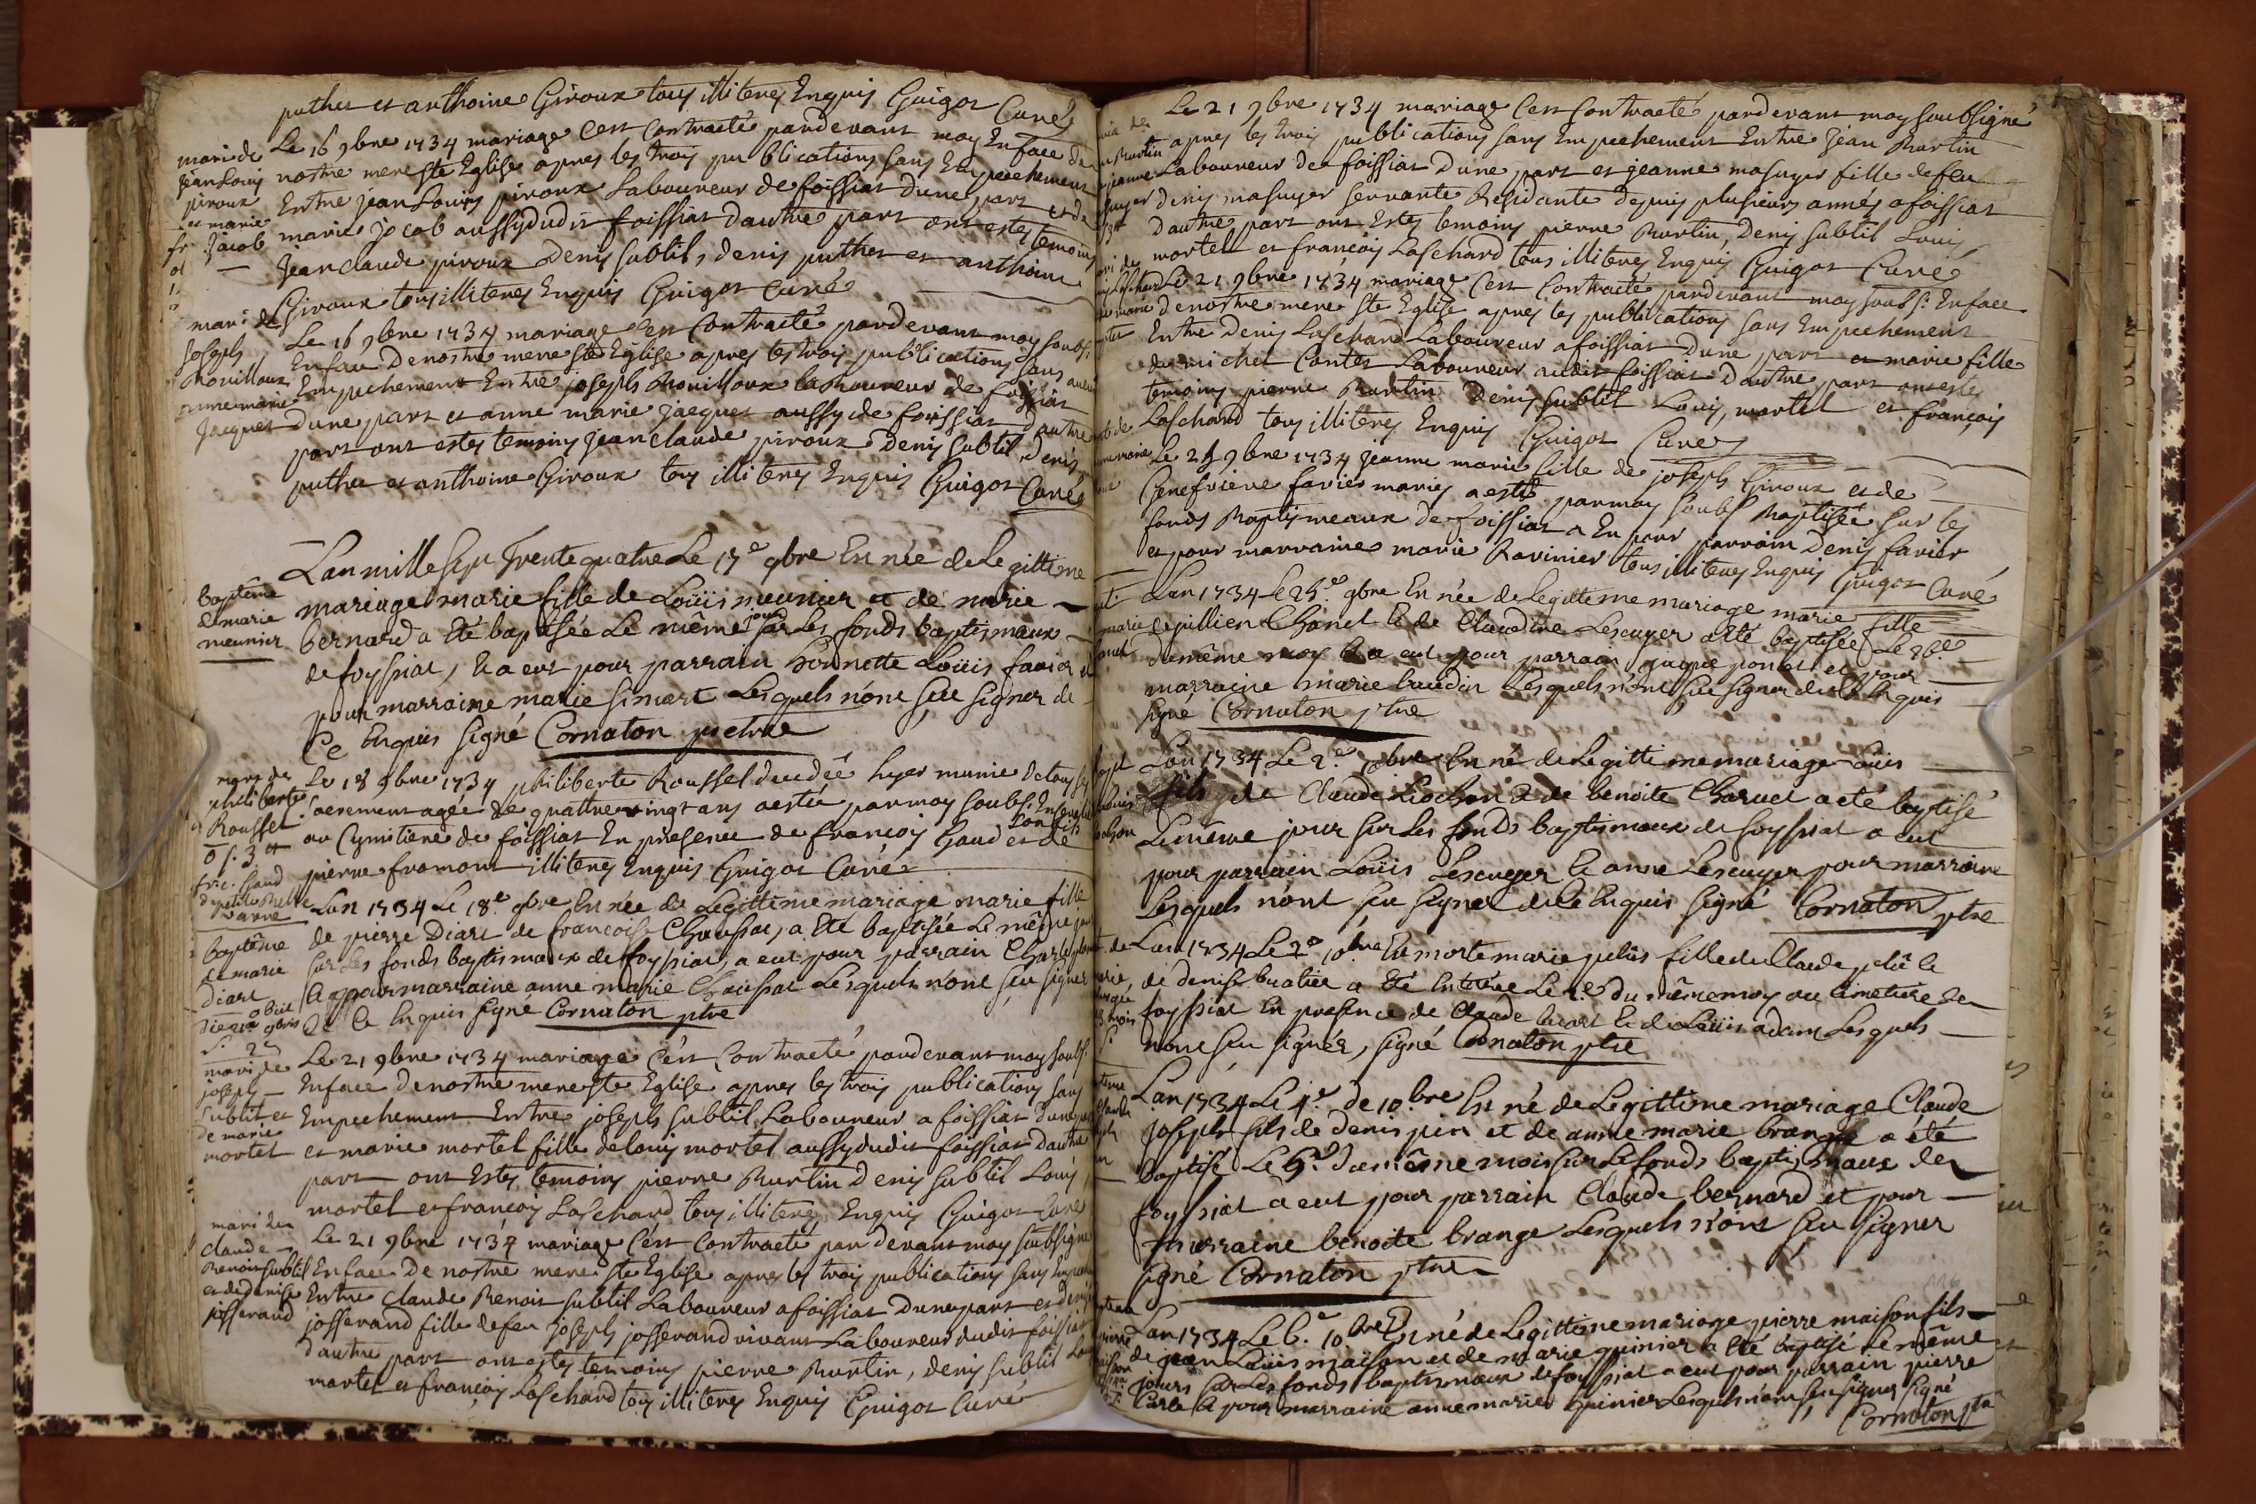 puthet et anthoine Giroux tous illiterez Enquis Guigot Curé
mari. de
Jean Louis
piroux
et marie
Jacob
Le 16 9bre 1734 mariage C'est Contracté pardevant moy En face de
nostre mere Ste Eglise apres les trois publications sans Empechement
Entre Jean Louis piroux Laboureur de foissiat dune part et de
marie Jacob aussydudit foissiat dautre part ont estes temoins
Jean claude piroux Denis subtil, denis puthet et anthoine
Giroux tous illiterez Enquis Guigot Curé
mari. de
Joseph
Rouilloux
anne marie
Jacquet
Le 16 9bre 1734 mariage C'est Contracté pardevant moy soubs.
En face De nostre mere Ste Eglise apres les trois publications sans aucun
Empechement Entre joseph Rouilloux laboureur de foissiat
dune part et anne marie jacquet aussy de foissiat dautre
part ont estes temoins Jean claude piroux Denis subtil, denis
puthet et anthoine Giroux tous illiterez Enquis Guigot Curé
baptême
de marie
meunier
Lan mille sept Trente quatre Le 17e 9bre Est née de Legittime
mariage marie fille de Loüis meunier et de marie
bernard a été baptisée Le même jour sur Les fonds baptismaux
de foyssiat, et a eut pour parrain honnette Loüis favier et
pour marraine marie simart Lesquels n'ont sçu signer de
Ce Enquis signé Cornaton pretre
mort de
philiberte
Roussel
Le 18 9bre 1734 philiberte Roussel decedée hyer munie de tous ses
sacrements agée de quattre vingt ans aestée par moy soubs. Ensevelie
au Cymitiere de foissiat En presence de francois Gaud et de
pierre fromont illiterez Enquis Guigot Curé
baptême
de marie
Diart
Lan 1734 Le 18e 9bre Est née de Legittime mariage marie fille
de pierre Diart de francoise Chaussat, a Eté baptisée Le même jour
sur Les fonds baptismaux de foyssiat, a eut pour parrain Charle
Et pour marraine anne marie Chaussat Lesquels n'ont sçu signer
De Ce Enquis signé Cornaton ptre
mari. de
joseph
subtil et
de marie
mortel
Le 21 9bre 1734 mariage C'est Contracté pardevant moy soubs.
En face de nostre mere Ste Eglise apres les trois publications sans
Empechement Entre joseph subtil Laboureur a foissiat dune part
et marie mortel fille de louis mortel aussydudit foissiat dautre
part ont Estes temoins pierre Burtin Denis subtil Louis
mortel et francois Laschard tous illiterez Enquis Guigot Curé
mari. de
claude
Benoit subtil
et de denise
josserand
Le 21 9bre 1734 mariage C'est Contracté par devant moy soubsigné
En face De nostre mere Ste Eglise apres les trois publications sans Empechement
Entre claude Benoit subtil Laboureur a foissiat Dune part et denise
josserand fille de feu joseph josserand vivant Laboureur dudit foissiat
dautre part ont estes temoins pierre Burtin, denis subtil Louis
mortel et francois Laschard tous illiterez Enquis Guigot Curé
Le 21 9bre 1734 mariage C'est Contracté pardevant moy soubsigné
apres les trois publications sans Empechement Entre Jean Burtin
Laboureur de foissiat Dune part et jeanne masuyer fille de feu
denis masuyer servante Residante depuis plusieurs années a foissiat
dautre part ont Estes temoins pierre Burtin, Denis subtil Louis
mortel et francois Laschard tous illiterez Enquis Guigot Curé
Le 21 9bre 1734 mariage C'est Contracté pardevant moy soubs. En face
de nostre mere Ste Eglise apres les publications sans Empechement
Entre Denis Laschard Laboureur a foissiat Dune part et marie fille
de michel Contet Laboureur audit foissiat d'autre part ont estes
temoins pierre Burtin Denis subtil Louis, mortel et francois
Laschard tous illiterez Enquis Guigot Curé
Le 24 9bre 1734 Jeanne marie fille de joseph Giroux et de
Genefvieve favier mariés a esté par moy soubs Baptisée sur les
fonds Baptismeaux de foissiat a Eu pour parrain Denis favier
et pour marraine marie Ravinier tous illiterez Enquis Guigot Curé
Lan 1734 Le 25e 9bre Est née de Legittime mariage marie fille
de jullien Chanel Et de Claudine Lescuyer a été baptisée Le 26e
du même moy Et a eut pour parrain jaque poncet et pour
marraine marie baudin Lesquels n'ont sçu signer de Ce Enquis
signé Cornaton ptre
Lan 1734 Le 2e 10bre Est né de Legittime mariage Loüis
fils de Claude Lochon & de benoite Charvet a eté baptisé
Le même jour sur Les fonds baptismaux de foyssiat a eut
pour parrain Loüis Lescuyer Et anne Lescuyer pour marraine
Lesquels n'ont sçu signer de Ce Enquis signé Cornaton ptre
Lan 1734 Le 2e 10bre Est morte marie pelûs fille de Claude pelû Et
de denise buatier a été Enterrée Le 2e du même moy au cimetiere de
foyssiat En presence de Claude Et de Loüis adam Lesquels
n'ont sçu signer, signé Cornaton ptre
Lan 1734 Le 4e de 10bre Est né de Legittime mariage Claude
joseph fils de denis pin et de anne marie brange a été
baptisé Le 5e du même mois sur Le fonds baptismaux de
foyssiat a eut pour parrain Claude bernard et pour
marraine benoite brange Lesquels n'ont sçu signer
signé Cornaton ptre
116
Lan 1734 Le 6e 10bre Est né de Legittime mariage pierre maison fils
de jean Loüis maison et de marie quinier a Eté baptisé Le même
jours sur Les fonds baptismaux de foyssiat a eut pour parrain pierre
Et pour marraine anne marie quinier Lesquels n'ont sçu signer signé
Cornaton ptre